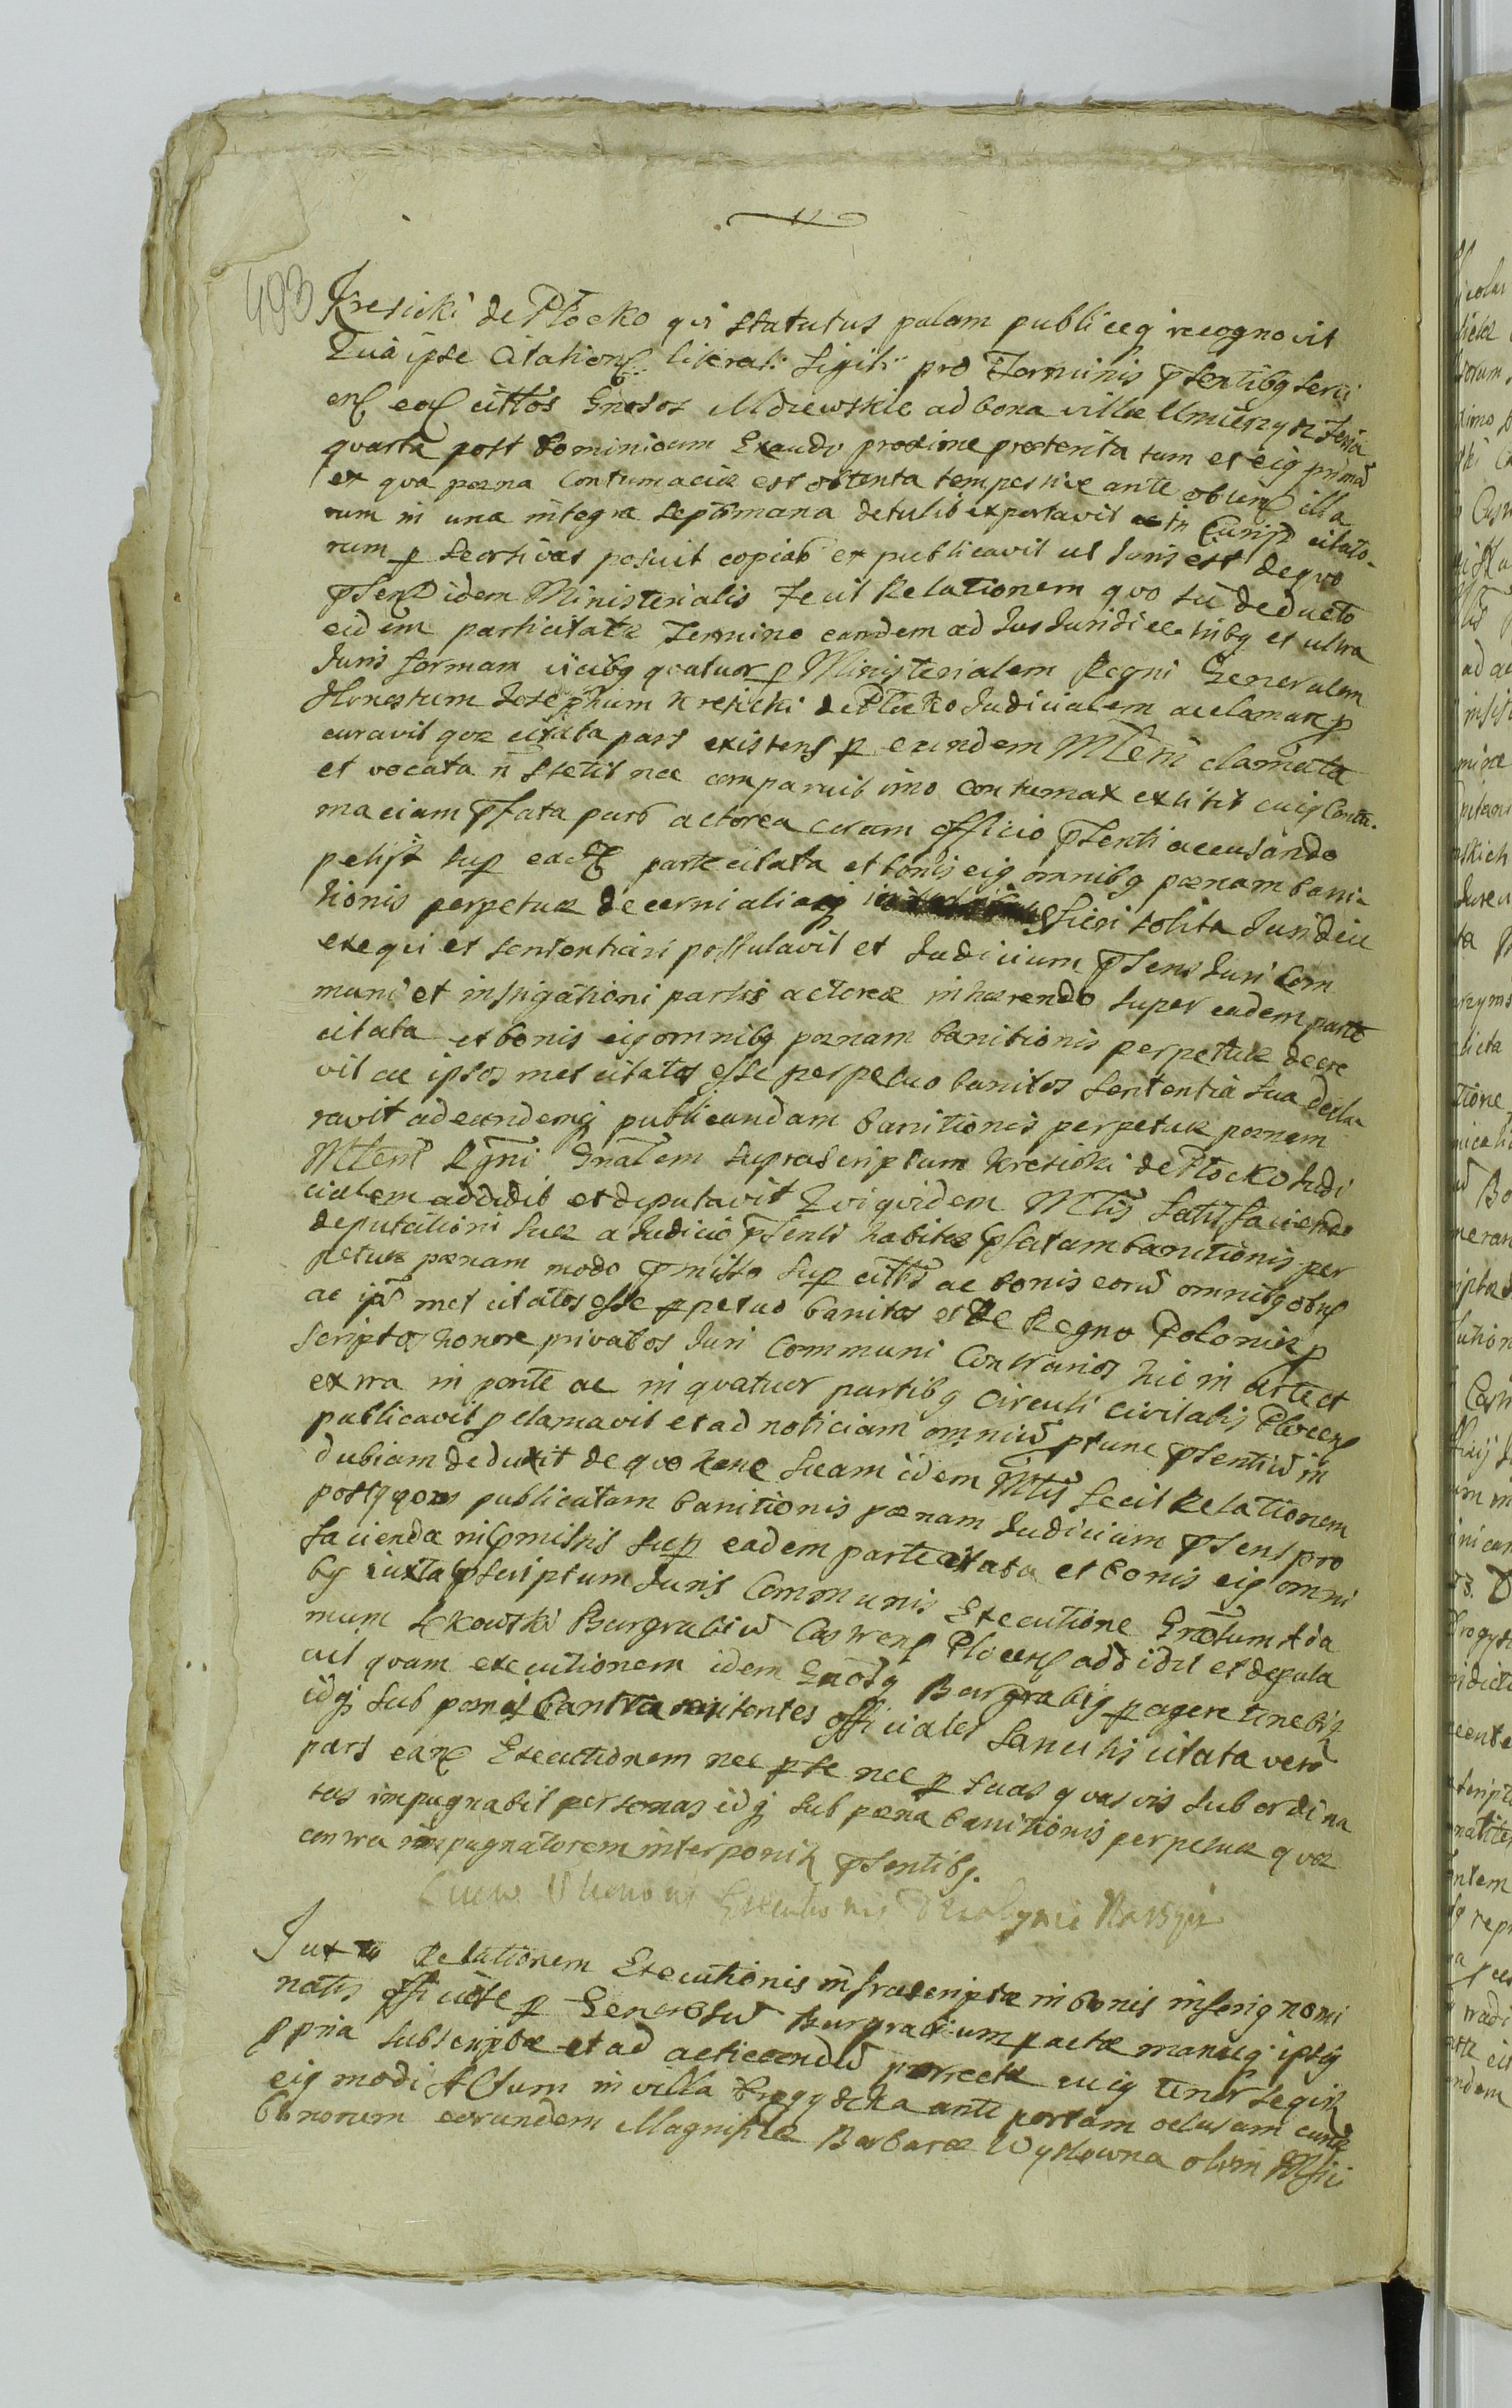 493 Kresicki de Plocko qvi statutus palam publiceq recognovit
Qvia ipse Citationes literat: Sigil: pro Terminis pſentibq
citos Gnosos Mdzewskie ad bona villæ Umienyn Feria
qvarta post Dominicam Exaudi proxime præterita tum et eiq prima
ex qva pœna Contumaciæ est obtenta tempestive ante illa
rum in una integra Septimana detulit exportavit ac in Curijs citato-
rum p seorsivas posuit copias et publicavit ut Juris est de qvo
pſens idem Ministerialis fecit Relationem qvo sic deducto
eidem parti citatæ Termino eandem ad Jus Juridice tribq et ultra
Juris formam vicibq qvatuor p Ministerialem Regni Generalem
Honestum Josephum Kresicki de Plocko Judicialem acclamare p
curavit qvæ citata pars existens p eundem Mlem clamata
et vocata n stetit nec comparuit imo contumax extitit cuiq Contu-
maciam pſata pars actorea coram officio pſenti accusando
petijt sup eadem parte citata et bonis eiq omnibq pœnam bani-
tionis perpetuæ decerni aliaq fieri solita Juridice
exeqvi et sententiari postulavit et Judicium pſens Juri Com
muni et instigationi partis actoreæ inhærendo super eadem parte
citata et bonis eiq omnibq pœnam banitionis perpetuæ decre
vit ac ipsos met citatos esse perpetuo banitos Sententia sua decla
ravit ad eandemq publicandam banitionis perpetuæ pœnam
Mlem Rgni Gnalem suprascriptum Kresicki de Plocko Judi
cialem addidit et deputavit Qvi qvidem Mlis satisfaciendo
deputationi suæ a Judicio pſenti habitæ pſatam banitionis per
petuæ pœnam modo pmisso sup citts ac bonis eoru omnibq obus
ac ipos met citatos esse ppetuo banitos et de Regno Poloniæ p
scriptos honore privatos Juri Communi Contrarios hic in arce et
extra in ponte ac in qvatuor partibq Circuli Civitatis Plocens
publicavit pclamavit et ad noticiam omniu ptunc pſentiu in
dubiam deduxit de qvo hanc suam idem Mlis fecit Relationem
post qvam publicatam banitionis pœnam Judicium pſens pro
facienda in pmissis sup eadem parte citata et bonis eiq omni
bq iuxta pſcriptum Juris Communis Executione Gnosum Ada
mum Lkowski Burgrabiu Castrens Plocens addidit et deputa
vit qvam executionem idem Gnosq Burgrabiq pagere tenebit
idq sub pœnis contra renitentes officiales sancitis citata vero
pars eam Executionem nec p se nec p suas qvasvis subordina
tas impugnabit personas idq sub pœna banitionis perpetuæ qvæ
contra impugnatorem interponit pſentibq.
Executionis
Juxta Relationem Executionis infrascriptæ in bonis inferiq nomi
natis officiose p Generosu Burgrabium pactæ manuq ipsiq
ppria subscriptæ et ad acticandu porrectæ cuiq tenor seqvit
eiq modi Actum in villa ante portam oclusam curiæ
bonorum eorundem Magnificæ Barbaræ olim Mfici